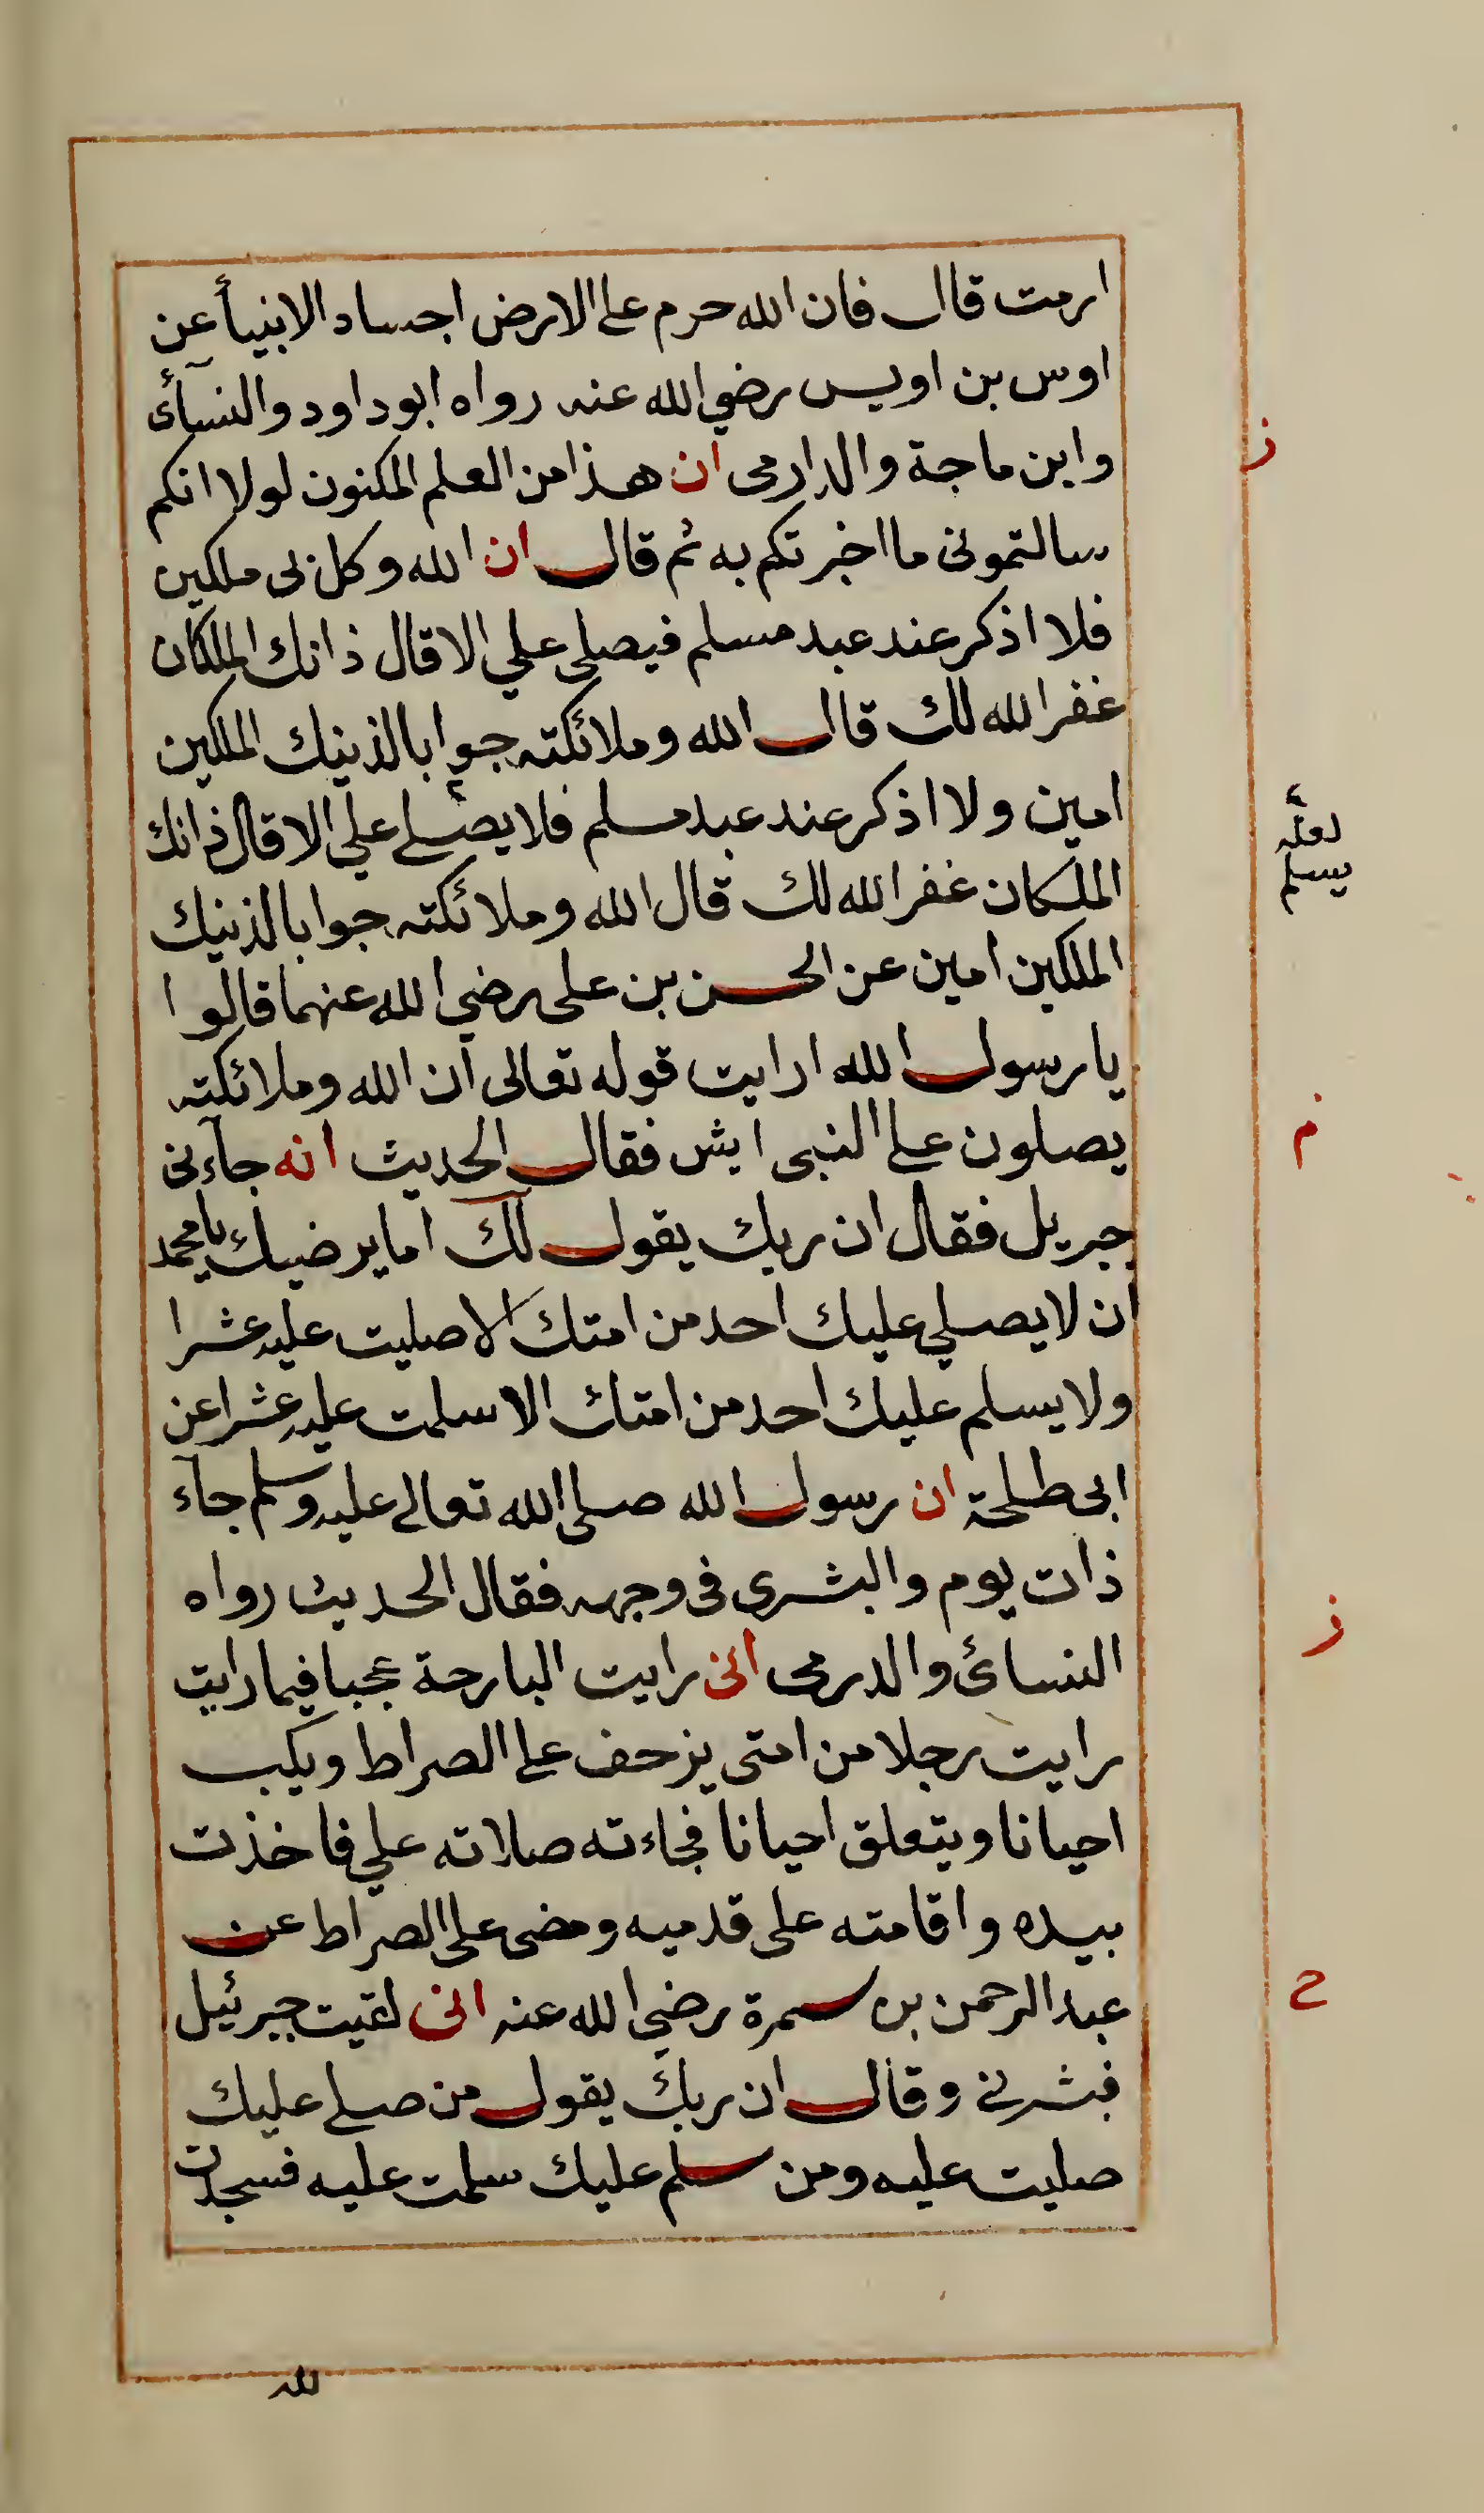 ارمت قال فان الله حرم على الارض اجساد الانبيأ عن
اوس بن اويس رضي الله عنه رواه ابو داود والنسآئ
وابن ماجة والدارمى ان هذا من العلم المكنون لولا انكم
سالتمونى ما اخبرتكم به ثم قال ان الله وكل بى ملكين
فلا اذكر عند عبد مسلم فيصلى علي الا قال ذانك الملكان
غفر الله لك قال الله وملائكته جوابا لذينك الملكين
امين ولا اذكر عند عبد مسلم فلا يصلے علي الا قال ذانك
الملكان غفر الله لك قال الله وملائكته جوابا لذينك
الملكين امين عن الحسن بن على رضي الله عنهما قالوا
يا رسول الله ارايت قوله تعالى ان الله وملائكته
يصلون على النبى ايش فقال الحديث انه جآءنى
جبريل فقال ان ربك يقول لك اما يرضيك يا محمد
ان لا يصلي عليك احد من امتك الا صليت عليه عشرا
ولا يسلم عليك احد من امتك الا سلمت عليه عشرا عن
ابى طلحة ان رسول الله صلى الله تعالے عليه وسلم جآء
ذات يوم والبشرى فى وجهه فقال الحديث رواه
النسائ والدرمى انى رايت البارحة عجبا فيما رايت
رايت رجلا من امتى يزحف على الصراط ويكب
احيانا ويتعلق احيانا فجاءته صلاته علي فاخذت
بيده واقامته على قدميه ومضى على الصراط عن
عبد الرحمن بن سمرة رضي الله عنه انى لقيت جبرئيل
فبشرنے وقال ان ربك يقول من صلے عليك
صليت عليه ومن سلم عليك سلمت عليه فسجدت
لله
ز
لعله
يسلم
م
ز
ح